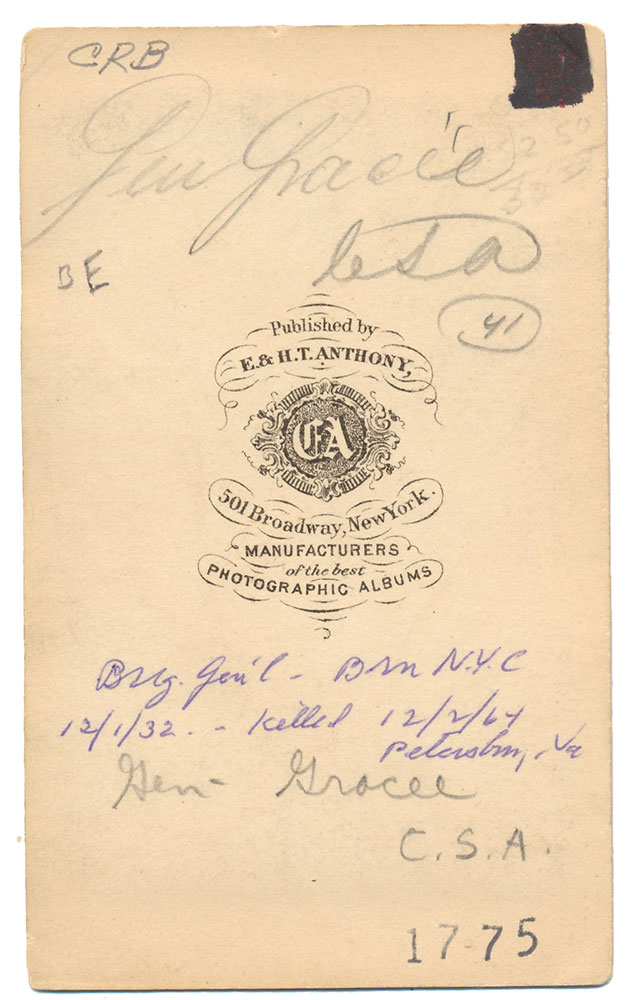 CRB
Gen Gracie
CSA
BE
41
Published by
E. & H.T. ANTHONY,
EA
501 Broadway, New York.
MANUFACTURERS
of the best
PHOTOGRAPHIC ALBUMS
Brig. Gen'l - Born N.Y.C
12/1/32. - Killed 12/2/64
Petersburg, Va
Gen- Gracie
C.S.A.
1775